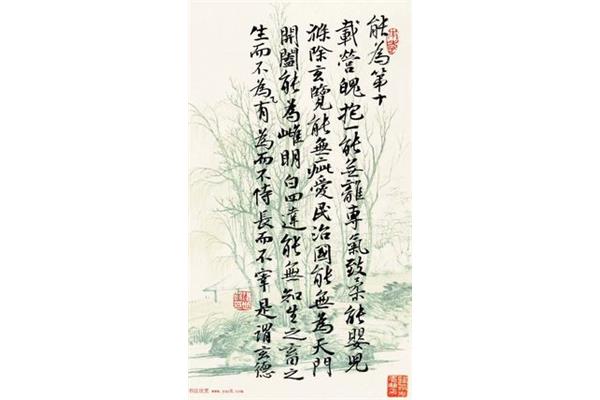 能為第十
載營魄抱一能無離專氣致柔能嬰兒
滌除玄覽能無疵愛民治國能無為天門
開闔能為雌明白四達能無知生之畜之
生而不為有為而不恃長而不宰是謂玄德
书法欣赏 www.yac8.com